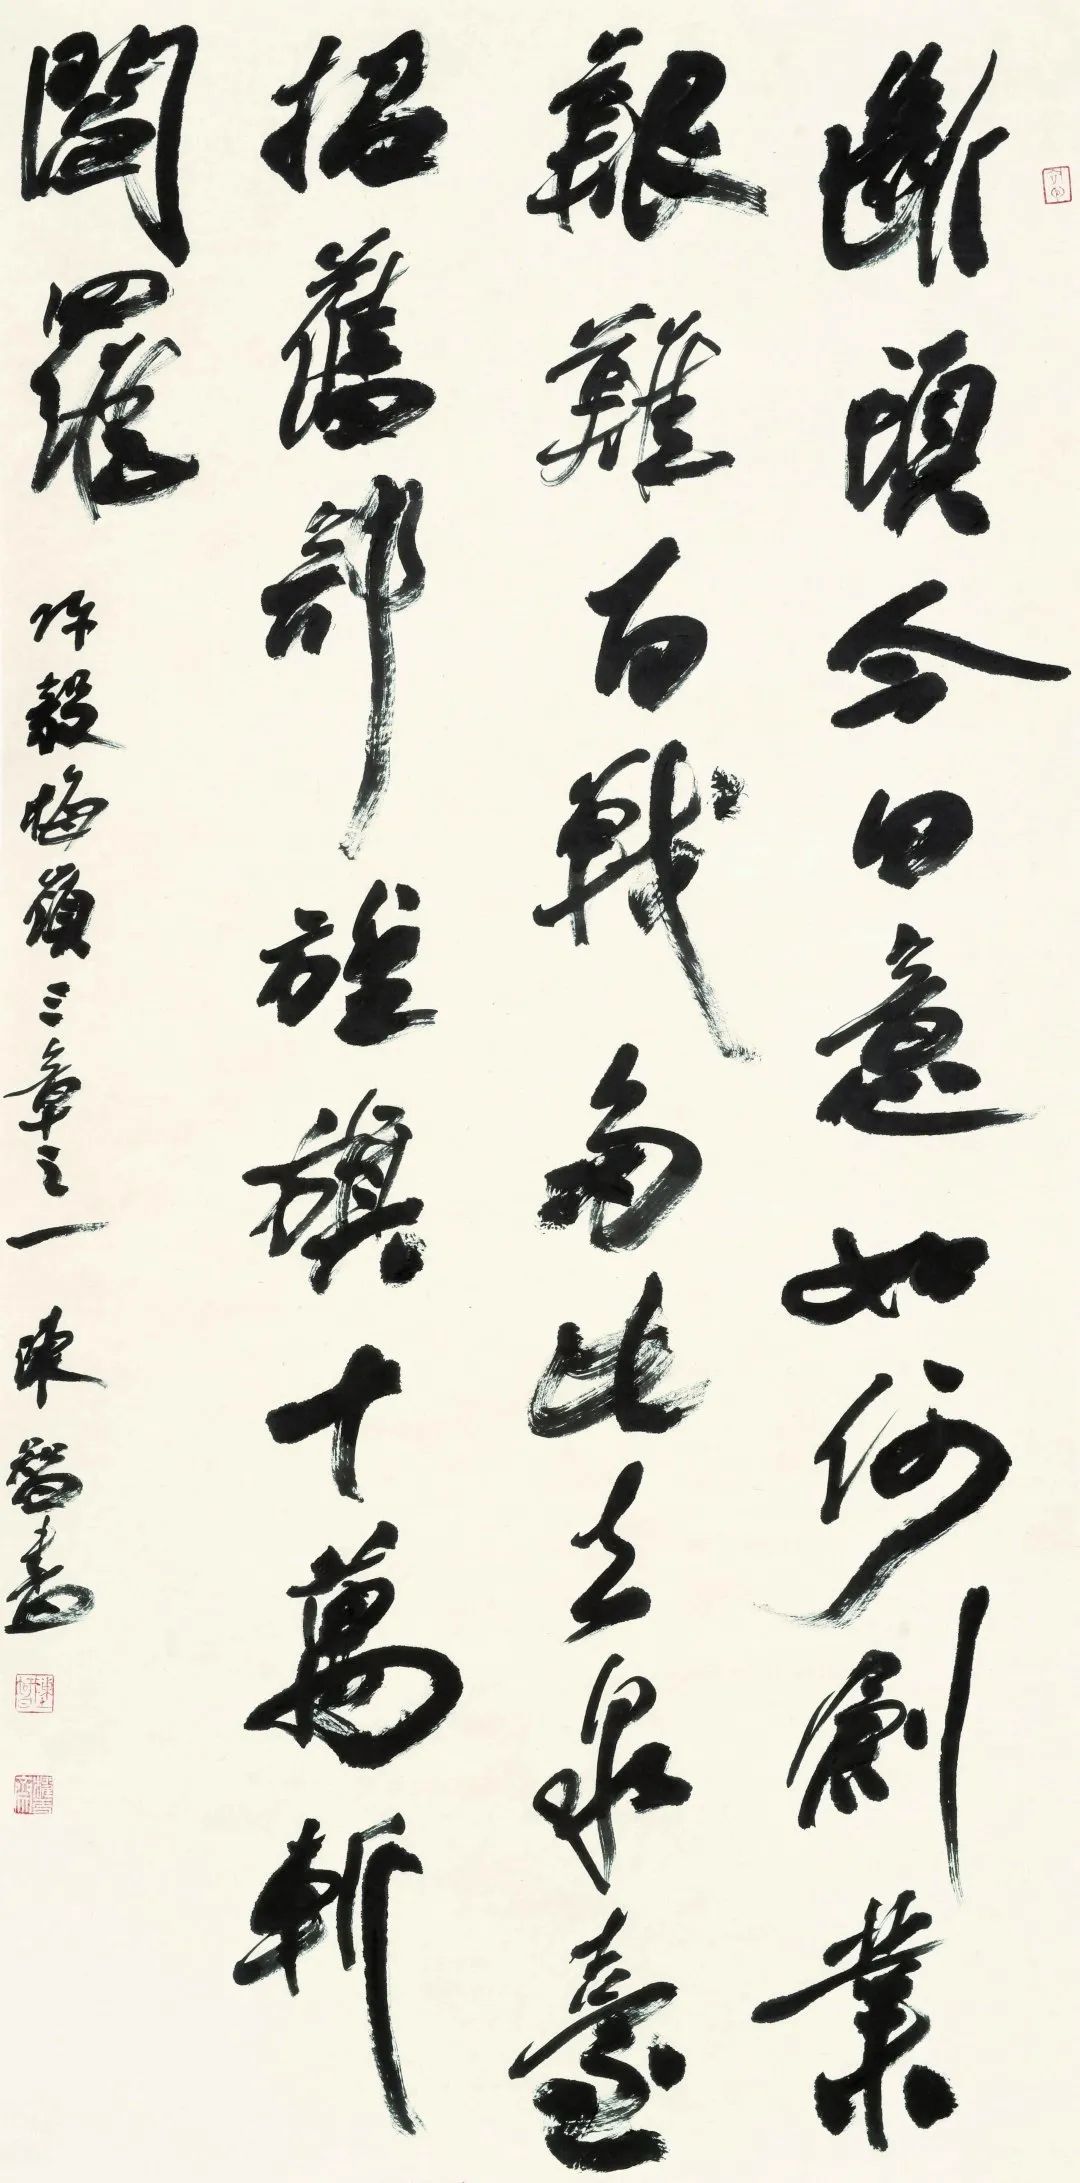 斷頭今日意如何創業
艱難百戰多此去泉臺
招舊部旌旗十萬斬
閻羅
陳毅梅嶺三章之一 陳 書